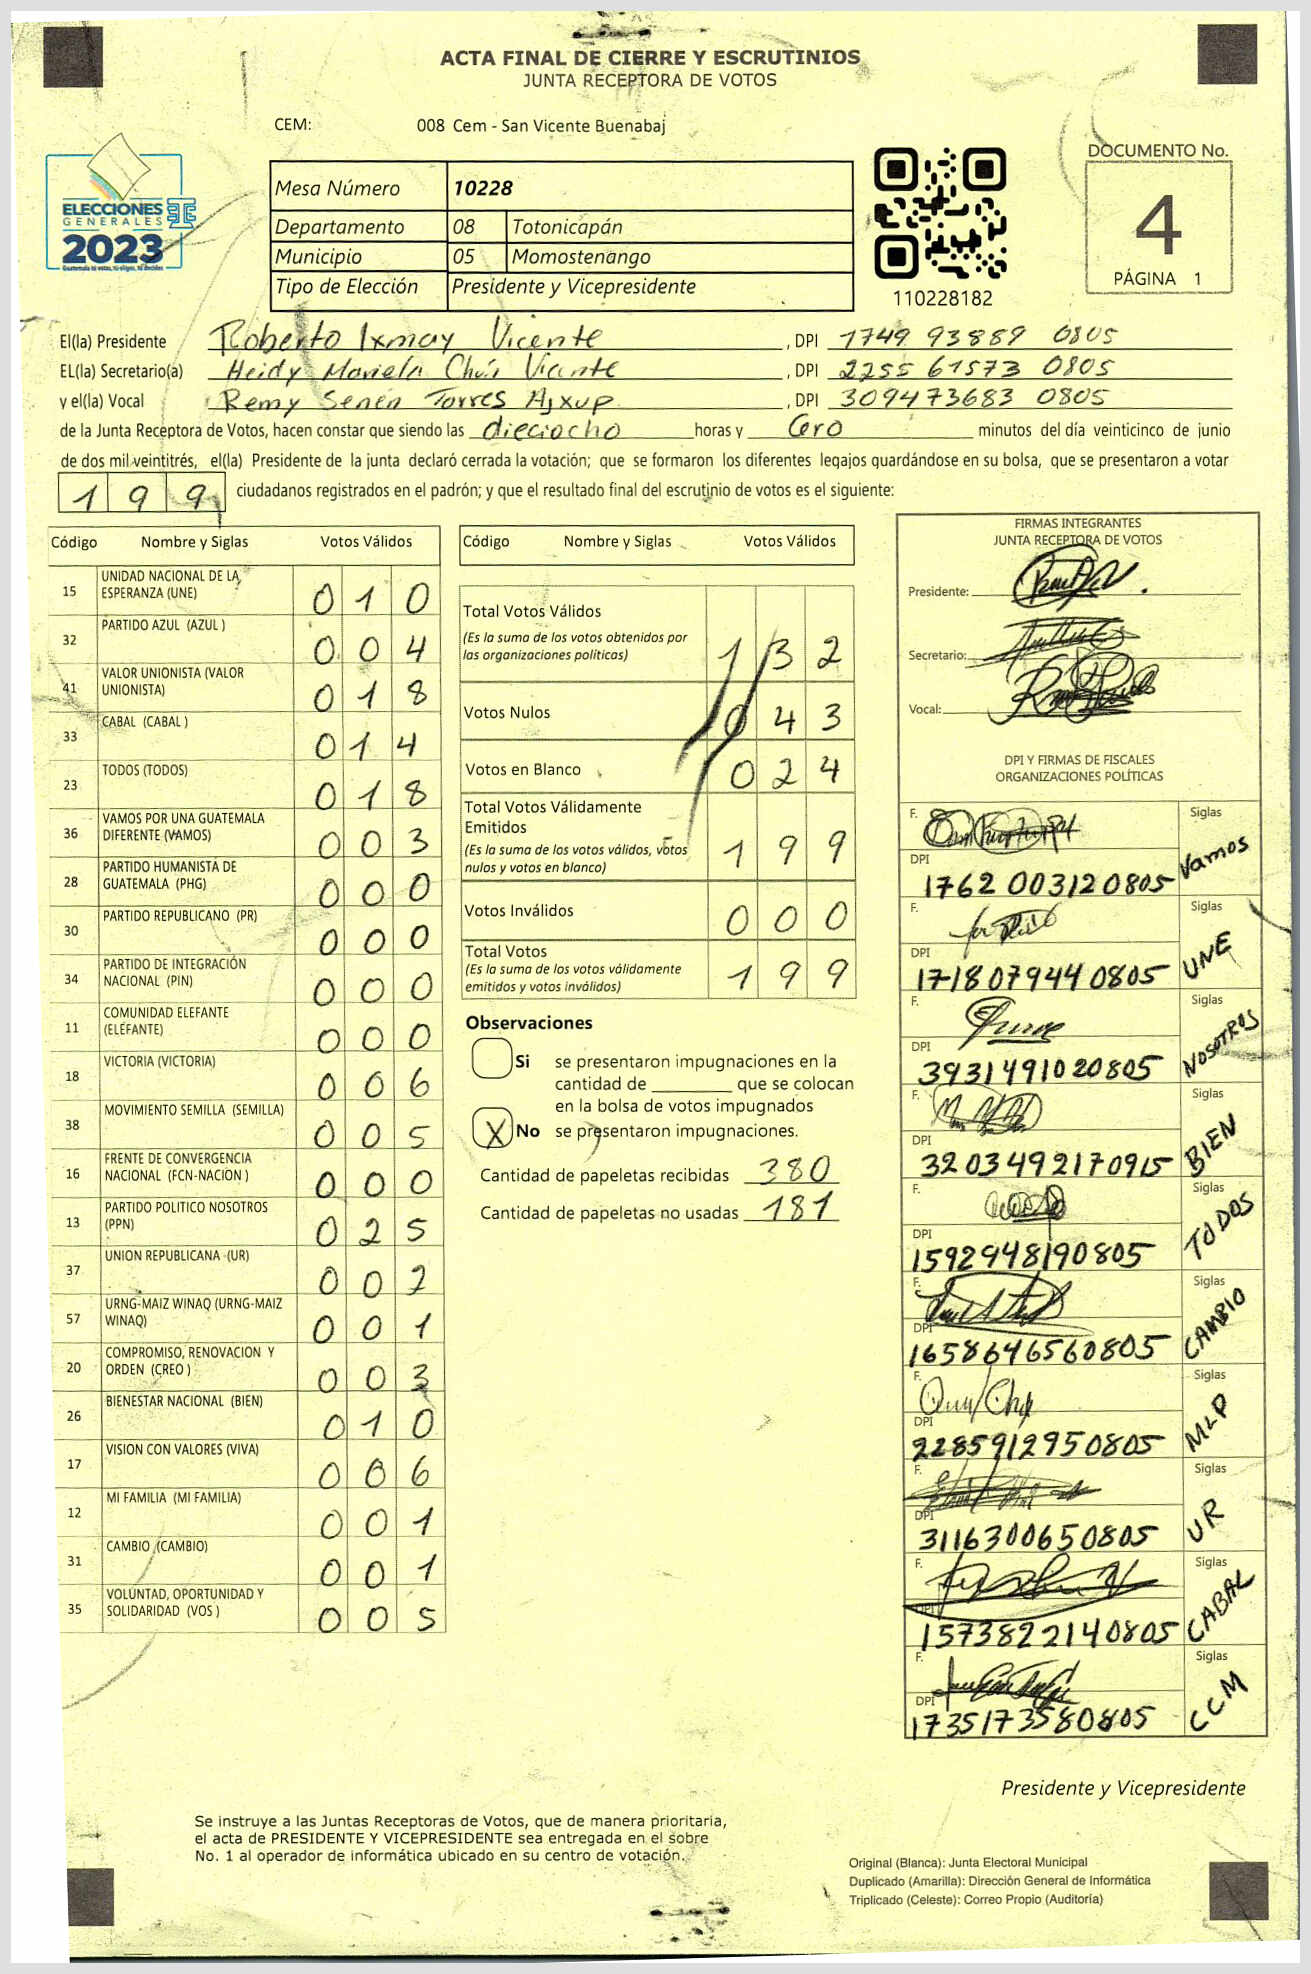 ACTA FINAL DE CIERRE Y ESCRUTINIOS
JUNTA RECEPTORA DE VOTOS
CEM: 008 Cem - San Vicente Buenabaj
ELECCIONES
GENERALES
2023
Mesa Número 10228
Departamento 08 Totonicapán
Municipio 05 Momostenango
Tipo de Elección Presidente y Vicepresidente
110228182
DOCUMENTO No.
4
PÁGINA 1
El(la) Presidente Roberto Ixmay Vicente, DPI 1749 93889 0805
EL(la) Secretario(a) Heidy Mariela Vicente, DPI 2255 61573 0805
y el(la) Vocal Remy Senen Torres Ajxup, DPI 309473683 0805
de la Junta Receptora de Votos, hacen constar que siendo las dieciocho horas y Cero minutos del día veinticinco de junio
de dos mil veintitrés, el(la) Presidente de la junta declaró cerrada la votación; que se formaron los diferentes legajos guardándose en su bolsa, que se presentaron a votar
199 ciudadanos registrados en el padrón; y que el resultado final del escrutinio de votos es el siguiente:
Código Nombre y Siglas Votos Válidos
15 UNIDAD NACIONAL DE LA ESPERANZA (UNE) 010
32 PARTIDO AZUL (AZUL ) 004
41 VALOR UNIONISTA (VALOR UNIONISTA) 018
33 CABAL (CABAL ) 014
23 TODOS (TODOS) 018
36 VAMOS POR UNA GUATEMALA DIFERENTE (VAMOS) 003
28 PARTIDO HUMANISTA DE GUATEMALA (PHG) 000
30 PARTIDO REPUBLICANO (PR) 000
34 PARTIDO DE INTEGRACIÓN NACIONAL (PIN) 000
11 COMUNIDAD ELEFANTE (ELEFANTE) 000
18 VICTORIA (VICTORIA) 006
38 MOVIMIENTO SEMILLA (SEMILLA) 005
16 FRENTE DE CONVERGENCIA NACIONAL (FCN-NACION ) 000
13 PARTIDO POLITICO NOSOTROS (PPN) 025
37 UNION REPUBLICANA (UR) 002
57 URNG-MAIZ WINAQ (URNG-MAIZ WINAQ) 001
20 COMPROMISO, RENOVACION Y ORDEN (CREO ) 003
26 BIENESTAR NACIONAL (BIEN) 010
17 VISION CON VALORES (VIVA) 006
12 MI FAMILIA (MI FAMILIA) 001
31 CAMBIO (CAMBIO) 001
35 VOLUNTAD, OPORTUNIDAD Y SOLIDARIDAD (VOS ) 005
Código Nombre y Siglas Votos Válidos
Total Votos Válidos
(Es la suma de los votos obtenidos por
las organizaciones políticas) 132
Votos Nulos 043
Votos en Blanco 024
Total Votos Válidamente
Emitidos
(Es la suma de los votos válidos, votos
nulos y votos en blanco) 199
Votos Inválidos 000
Total Votos
(Es la suma de los votos válidamente
emitidos y votos inválidos) 199
Observaciones
Si se presentaron impugnaciones en la
cantidad de ________ que se colocan
en la bolsa de votos impugnados
X No se presentaron impugnaciones.
Cantidad de papeletas recibidas 380
Cantidad de papeletas no usadas 181
FIRMAS INTEGRANTES
JUNTA RECEPTORA DE VOTOS
Presidente:
Secretario:
Vocal:
DPI Y FIRMAS DE FISCALES
ORGANIZACIONES POLÍTICAS
F. Siglas
DPI 1762 003120805 Vamos
F. Siglas
DPI 1718079440805 UNE
F. Siglas
DPI 3931491020805 NOSOTROS
F. Siglas
DPI 3203492170915 BIEN
F. Siglas
DPI 1592948190805 TODOS
F. Siglas
DPI 1658646560805 CAMBIO
F. Siglas
DPI 2285912950805 MLP
F. Siglas
DPI 3116300650805 UR
F. Siglas
DPI 1573822140805 CABAL
F. Siglas
DPI 1735173580805 CCM
Presidente y Vicepresidente
Se instruye a las Juntas Receptoras de Votos, que de manera prioritaria,
el acta de PRESIDENTE Y VICEPRESIDENTE sea entregada en el sobre
No. 1 al operador de informática ubicado en su centro de votación.
Original (Blanca): Junta Electoral Municipal
Duplicado (Amarilla): Dirección General de Informática
Triplicado (Celeste): Correo Propio (Auditoría)